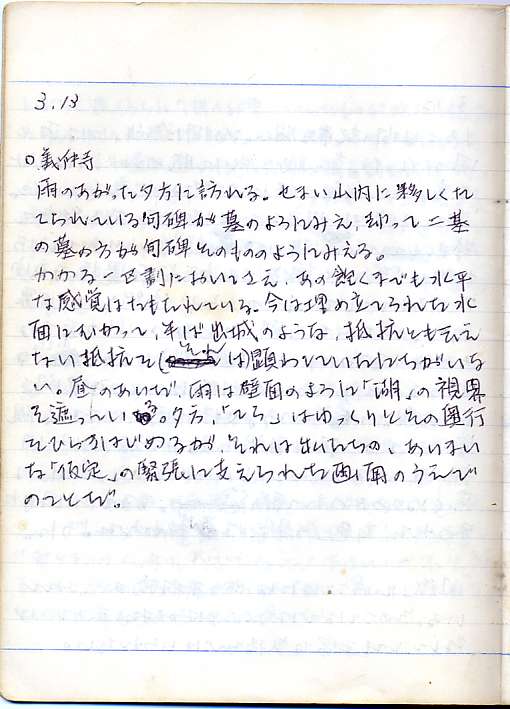 3.13
○義仲寺
雨のあがった夕方に訪れる。せまい山内に夥しくた
てられている句碑が墓のようにみえ、却って二基
の墓の方が句碑そのもののようにみえる。
かかる一区劃においてさえ、あの飽くまでも水平
な感覚はたもたれている。今は埋め立てられた水
面にむかって、半ば出城のような、抵抗ともいえ
ない抵抗を(それは)顕わしていたにちがいな
い。昼のあいだ、雨は壁面のように「湖」の視界
を遮っている。夕方、「てら」はゆっくりとその奥行
をひらきはじめるが、それは私たちの、あいまい
な「仮定」の緊張に支えられた画面のうえで
のことだ。